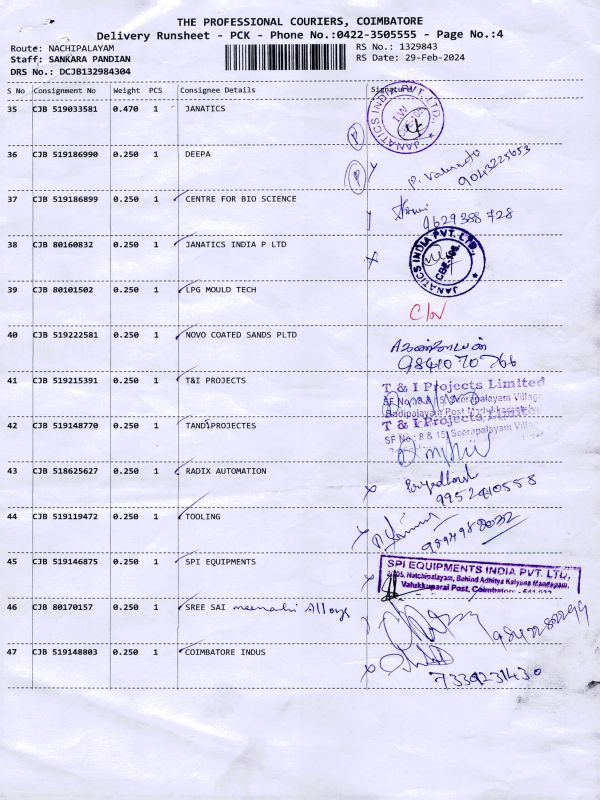 THE PROFESSIONAL COURIERS, COIMBATORE
Delivery Runsheet - PCK - Phone No.:0422-3505555 - Page No.:4
Route: NACHIPALAYAM
RS No.: 1329843
Staff: SANKARA PANDIAN
RS Date: 29-Feb-2024
DRS No.: DCJB132984304
S No Consignment No Weight PCS Consignee Details Signature
35 CJB 519033581 0.470 1 JANATICS
JANATICS INDIA PVT. LTD.
P
36 CJB 519186990 0.250 1 DEEPA
P
9043225653
37 CJB 519186899 0.250 1 CENTRE FOR BIO SCIENCE
9629388728
38 CJB 80160832 0.250 1 JANATICS INDIA P LTD
JANATICS INDIA PVT. LTD.
39 CJB 80101502 0.250 1 LPG MOULD TECH
40 CJB 519222581 0.250 1 NOVO COATED SANDS PLTD
9841070766
41 CJB 519215391 0.250 1 T&I PROJECTS
T & I Projects Limited
42 CJB 519148770 0.250 1 TANDIPROJECTES
T & I Projects Limited
SF No : 8 & 15, Seerapalayam Village
43 CJB 518625627 0.250 1 RADIX AUTOMATION
9952410558
44 CJB 519119472 0.250 1 TOOLING
45 CJB 519146875 0.250 1 SPI EQUIPMENTS
SPI EQUIPMENTS INDIA PVT. LTD.,
Natchipalayam, Behind Adhitya Kalyana Mandapam,
Valukkuparai Post, Coimbatore
46 CJB 80170157 0.250 1 SREE SAI meenakshi Alloys
47 CJB 519148803 0.250 1 COIMBATORE INDUS
7339231430